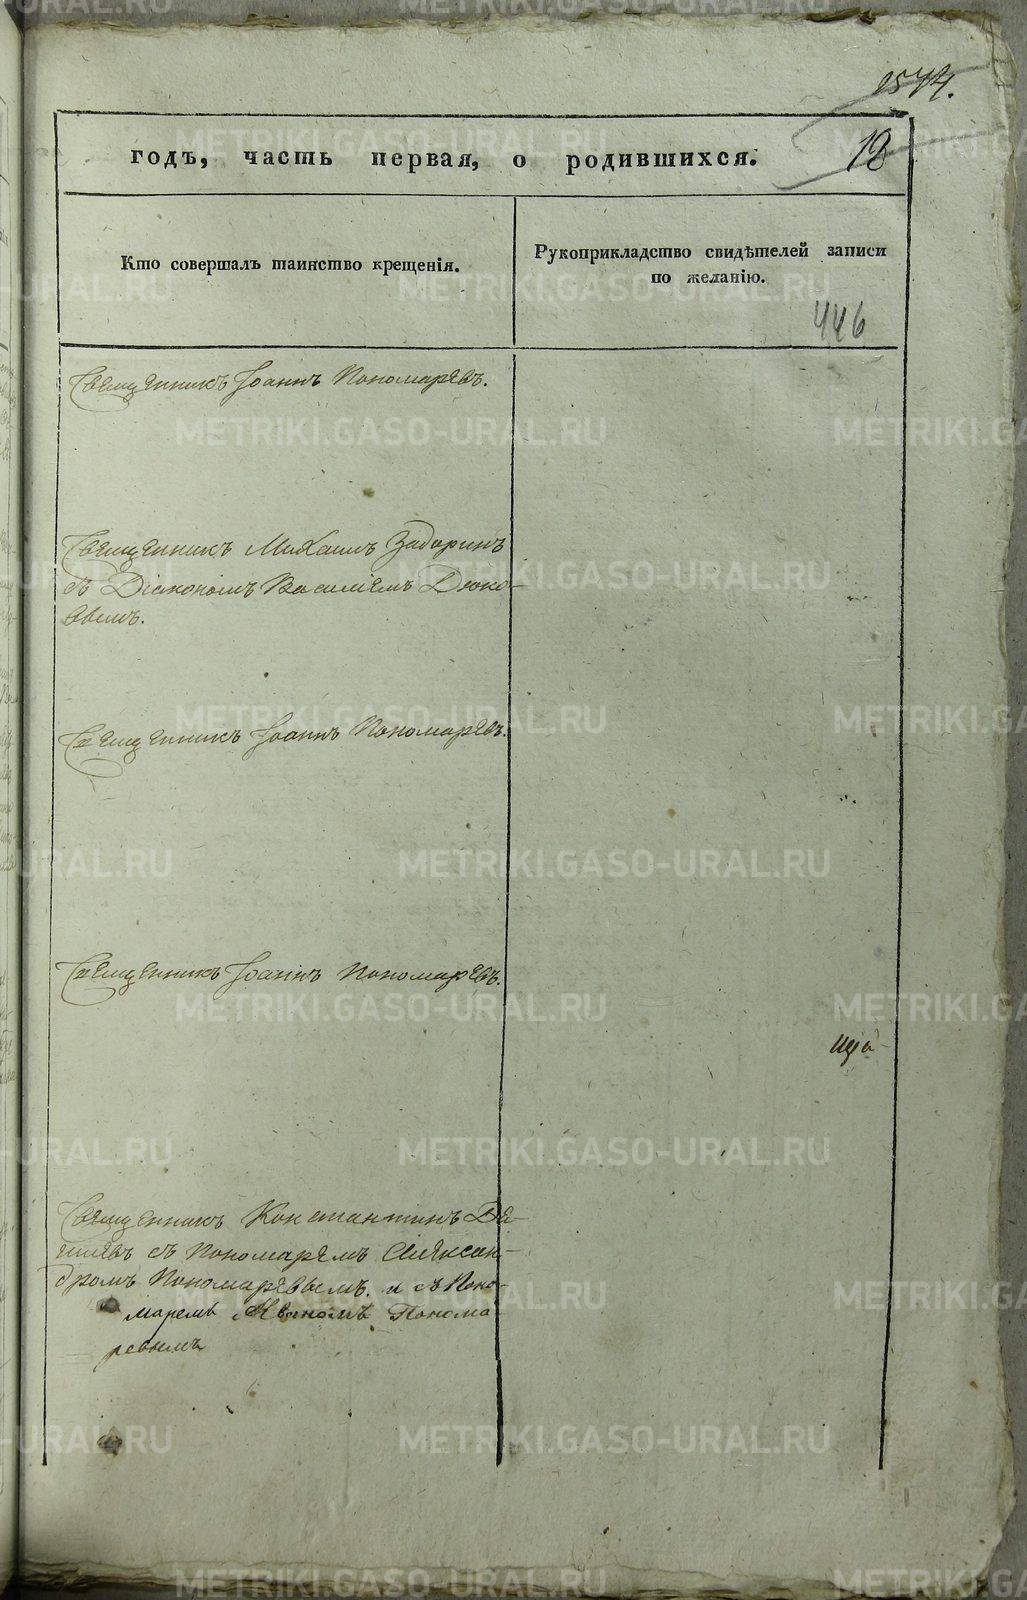 1544.
годъ, часть первая, о родившихся.
12
Кто совершалъ таинство крещенія.
Рукоприкладство свидѣтелей записи
по желанію.
446
Священникъ Іоаннъ Пономаревъ.
Священникъ Михаилъ Задоринъ
съ Діакономъ Василіемъ Дюко-
вымъ.
Священникъ Іоаннъ Пономаревъ.
Священникъ Іоаннъ Пономаревъ.
Священникъ Константинъ
съ Пономаремъ Алексан-
дромъ Пономаревымъ. и съ Поно-
маремъ Иваномъ Понома-
ревымъ
METRIKI.GASO-URAL.RU